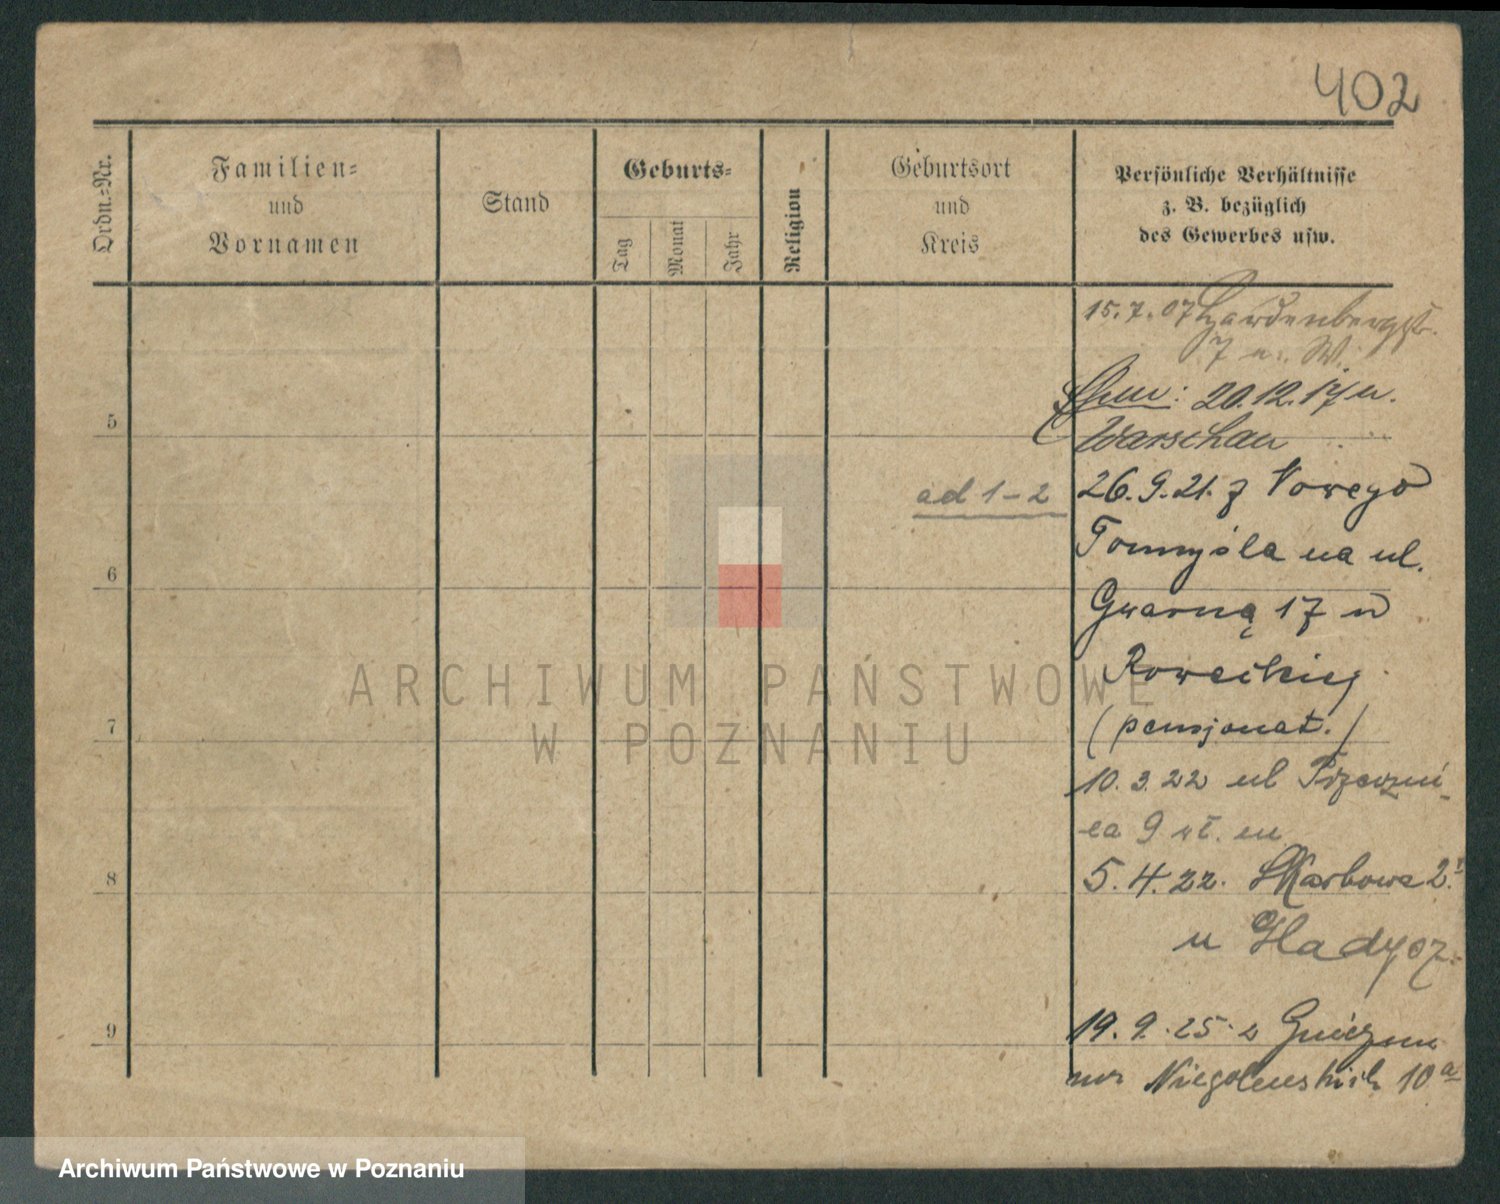 402
Ordn.-Nr.
Familien-
und
Vornamen
Stand
Geburts-
Tag
Monat
Jahr
Religion
Geburtsort
und
Kreis
Persönliche Verhältnisse
z. B. bezüglich
des Gewerbes usw.
15.7.07 Hardenbergstr.
7 n. W.
20.12.17 n.
Warschau
5
ad 1-2
26.9.21. z Nowego
Tomyśla na ul.
6
Gwarną 17 u
Roweckiej
(pensjonat.)
7
10.3.22 ul
9
5.4.22. Skarbowa 2.
8
u Gladysz.
19.9.25. z Gniezna
9
Niegolewskich 10a
ARCHIWUM PAŃSTWOWE
W POZNANIU
Archiwum Państwowe w Poznaniu